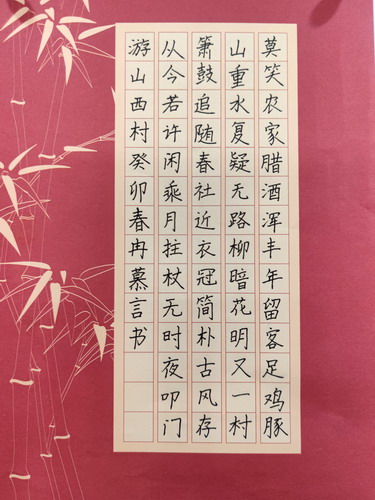 莫笑农家腊酒浑丰年留客足鸡豚
山重水复疑无路柳暗花明又一村
箫鼓追随春社近衣冠简朴古风存
从今若许闲乘月拄杖无时夜叩门
游山西村癸卯春冉慕言书